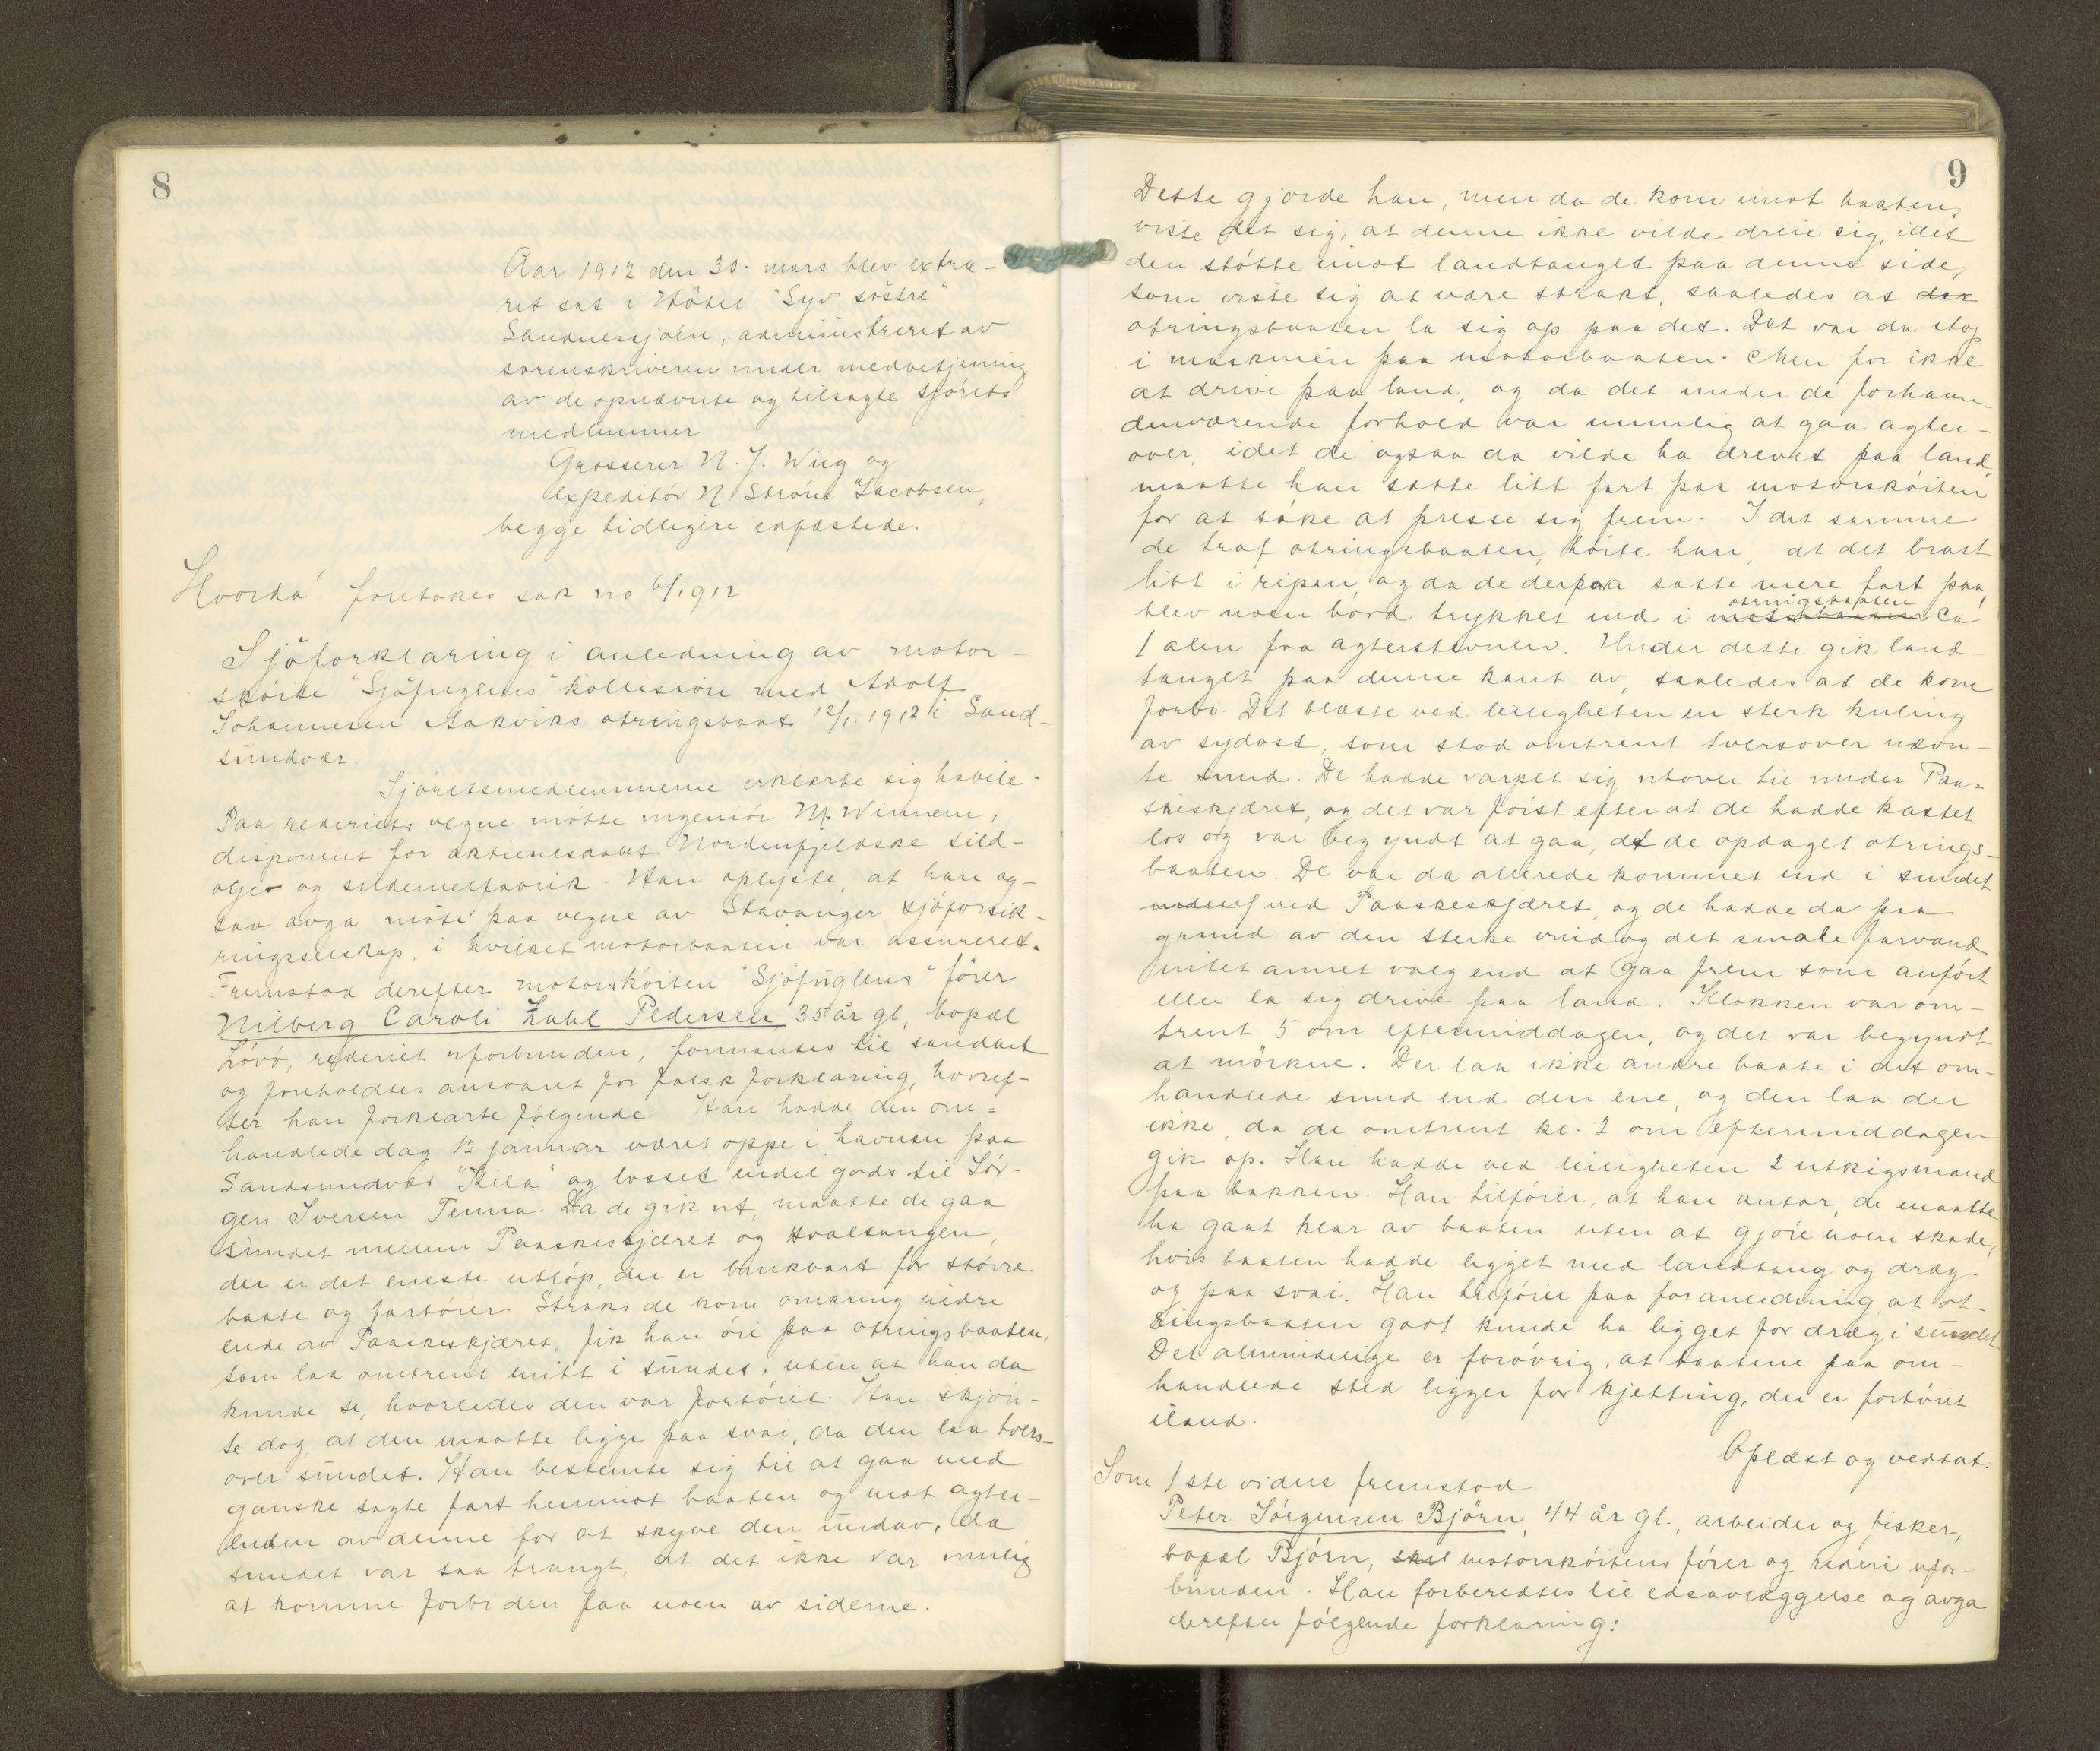 8
Aar 1912 den 30. mars blev extra-
ret sat i Hôtel "Syv söstre"
Sandnessjöen, administreret av
sorenskriveren under medbetjening
av de opnævnte og tilsagte sjörets
medlemmer
Grosserer N. J. Wiig og
expeditör N. Ström Jacobsen,
begge tidligere edfæstede.
Hvorda! foretokes sak no 6/1912
Sjöforklaring i anledning av motor-
sköite "Sjöfuglens" kollision med Adolf
Johannesen Aakviks otringsbaat 12/1. 1912 i Sand-
sundvær.
Sjöretsmedlemmerne erklærte sig habile.
Paa rederiets vegne mötte ingeniör M. Winnem,
disponent for aktieselskabet Nordenfjeldske sild-
olje og sildemelfabrik. Han oplyste, at han og-
saa avga möte paa vegne av Stavanger sjöforsik-
ringsselskap, i hvilket motorbaaten var assureret.
Fremstod derefter motorsköiten "Sjöfuglens" förer
Nilberg Caroli Zahl Pedersen 35 år gl, bopæl
Lövö, rederiet uforbunden, formantes til sandhet
og foreholdtes ansvaret for falsk forklaring, hvoref-
ter han forklarte fölgende: Han hadde den om-
handlede dag 12 januar været oppe i havnen paa
Sandsundvær "Kila" og losset endel gods til Jör-
gen Iversen Tenna. Da de gik ut, maatte de gaa
sundet mellem Paaskeskjæret og Hvalsangen,
der er det eneste utlöp, der er brukbart for större
baate og fartöier. Straks de kom omkring nedre
ende av Paaskeskjæret, fik han öie paa otringsbaaten,
som laa omtrent midt i sundet, uten at han da
kunde se, hvorledes den var fortöiet. Han skjön-
te dog, at den maatte ligge paa svai, da den laa tvers-
over sundet. Han bestemte sig til at gaa med
ganske sagte fart henimot baaten og mot agter-
enden av denne for at skyve den undav, da
sundet var saa trangt, at det ikke var mulig
at komme forbi den paa noen av siderne.
9
Dette gjorde han, men da de kom imot baaten,
viste det sig, at denne ikke vilde dreie sig, idet
den stötte imot landtauget paa denne side,
som viste sig at være strakt, saaledes at der
otringsbaaten la sig op paa det. Det var da stop
i maskinen paa motorbaaten. Men for ikke
at drive paa land, og da det under de forhaan-
denværende forhold var umulig at gaa agter-
over, idet de ogsaa da vilde ha drevet paa land,
maatte han sætte litt fart paa motorsköiten
for at söke at presse sig frem. I det samme
de traf otringsbaaten, hörte han, at det brast
litt i ripen, og da de derpaa satte mere fart paa,
blev noen bord trykket ind i motorbaaten otringsbaaten ca
1 alen fra agterstevnen. Under dette gik land-
tauget paa denne kant av, saaledes at de kom
forbi. Det blæste ved leiligheten en sterk kuling
av sydost, som stod omtrent tversover nævn-
te sund. De hadde varpet sig utover til under Paa-
skeskjæret, og det var först efter at de hadde kastet
los og var begyndt at gaa, at de opdaget otrings-
baaten. De var da allerede kommet ind i sundet
ved Paaskeskjæret, og de hadde da paa
grund av den sterke vind og det smale farvand
intet annet valg end at gaa frem som anfört
eller la sig drive paa land. Klokken var om-
trent 5 om eftermiddagen, og det var begyndt
at mörkne. Der laa ikke andre baate i det om-
handlede sund end den ene, og den laa der
ikke, da de omtrent kl. 2 om eftermiddagen
gik op. Han hadde ved leiligheten 2 utkigsmænd
paa bakken. Han tilföier, at han antar, de maatte
ha gaat klar av baaten uten at gjöre noen skade,
hvis baaten hadde ligget med landtaug og dræg
og paa svai. Han tilföier paa foranledning, at ot-
ringsbaaten godt kunde ha ligget for dræg i sundet
Det almindelige er forövrig, at baatene paa om-
handlede sted ligger for kjetting, der er fortöiet
iland.
Oplæst og vedtat.
Som 1ste vidne fremstod
Peter Jörgensen Björn, 44 år gl., arbeider og fisker,
bopæl Björn, motorsköitens förer og rederi ufor-
bunden. Han forberedtes til edsavlæggelse og avga
derefter fölgende forklaring: